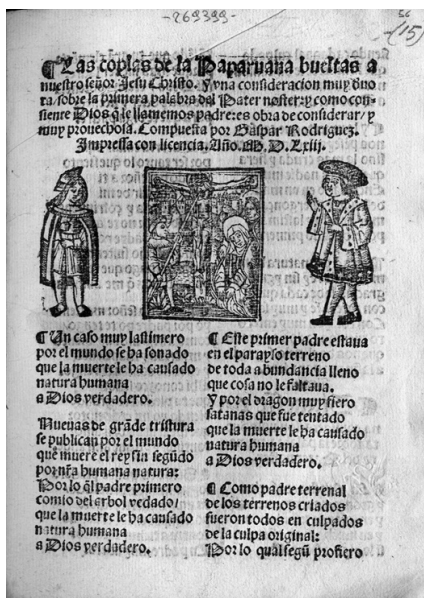 -269399-
56
(15)
¶Las coplas de la Paparuana bueltas a
nuestro señor Jesu Christo. y vna consideracion muy deuo
ta/sobre la primera palabra del Pater noster: y como con-
siente Dios q̃ le llamemos padre: es obra de considerar/y
muy prouechosa. Compuesta por Gaspar Rodriguez.
Impressa con licencia. Año. M. D. Lxiii.
¶Un caso muy lastimero
por el mundo se ha sonado
que la muerte le ha causado
natura humana
a Dios verdadero.
Nueuas de grãde tristura
se publican por el mundo
que muere el rey sin segũdo
por nr̃a humana natura:
Por lo q̃l padre primero
comio del arbol vedado/
que la muerte le ha causado
natura humana
a Dios verdadero.
¶Este primer padre estaua
en el parayso terreno
de toda abundancia lleno
que cosa no le faltaua.
Y por el dragon muy fiero
satanas que fue tentado
que la muerte le ha causado
natura humana
a Dios verdadero.
¶Como padre terrenal
de los terrenos criados
fueron todos en culpados
de la culpa original:
Por lo qual segũ profiero